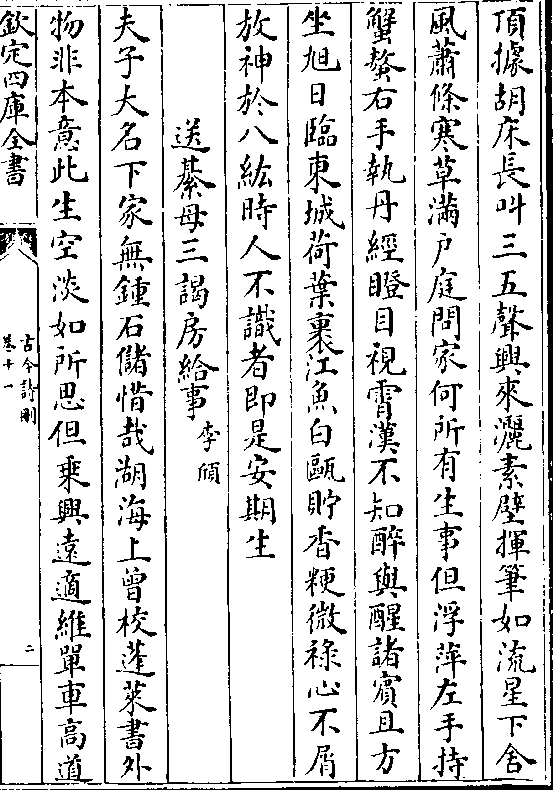 頂據胡床長叫三五聲興來灑素壁揮筆如流星下舍
風蕭條寒草滿户庭問家何所有生事但浮萍左手持
蟹螯右手執丹經瞪目視霄漢不知醉與醒諸賓且方
坐旭日臨東城荷葉裹江魚白甌貯香粳微祿心不屑
放神於八紘時人不識者即是安期生
送綦母三謁房給事李頎
夫子大名下家無鍾石儲惜哉湖海上曾校蓬萊書外
物非本意此生空淡如所思但乗興遠適維單車髙道
欽定四庫全書
古今詩刪
卷十一
二